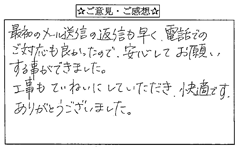 ☆ご意見・ご感想☆
最初のメール送信の返信も早く、電話での
ご対応も良かったので、安心してお願い
する事ができました。
工事もていねいにしていただき、快適です。
ありがとうございました。